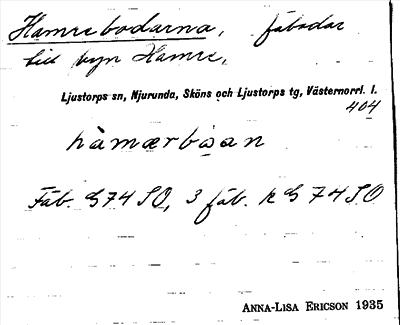 Hamrebodarna, fäbodar
till byn Hamre,
Ljustorps sn, Njurunda, Sköns och Ljustorps tg, Västernorrl. l.
404
hàmærbọan
Fäb. G74SO, 3 fäb. k G74SO
ANNA-LISA ERICSON 1935